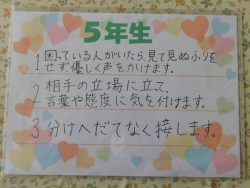 5年生
1困っている人がいたら見て見ぬふりを
せず、優しく声をかけます。
2相手の立場に立って、
言葉や態度に気を付けます。
3分けへだてなく接します。